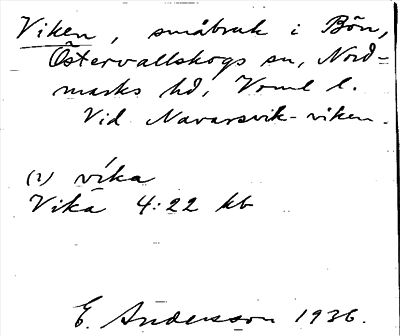 Viken, småbruk i Bön,
Östervallskogs sn, Nord-
marks hd, Vrml l.
Vid Navarsvik-viken.
(2) víka
Vika 4:22 kb
E. Andersson 1936.